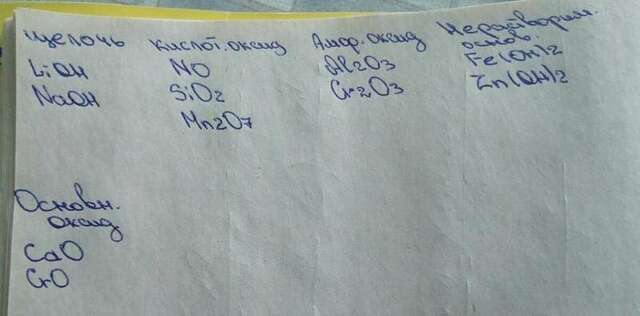 Щелочь Кислот. оксид Амф. оксид Нерастворим. основ.
LiOH NO Al2O3 Fe(OH)2
NaOH SiO2 Cr2O3 Zn(OH)2
Mn2O7
Основн.
оксид
CaO
CrO